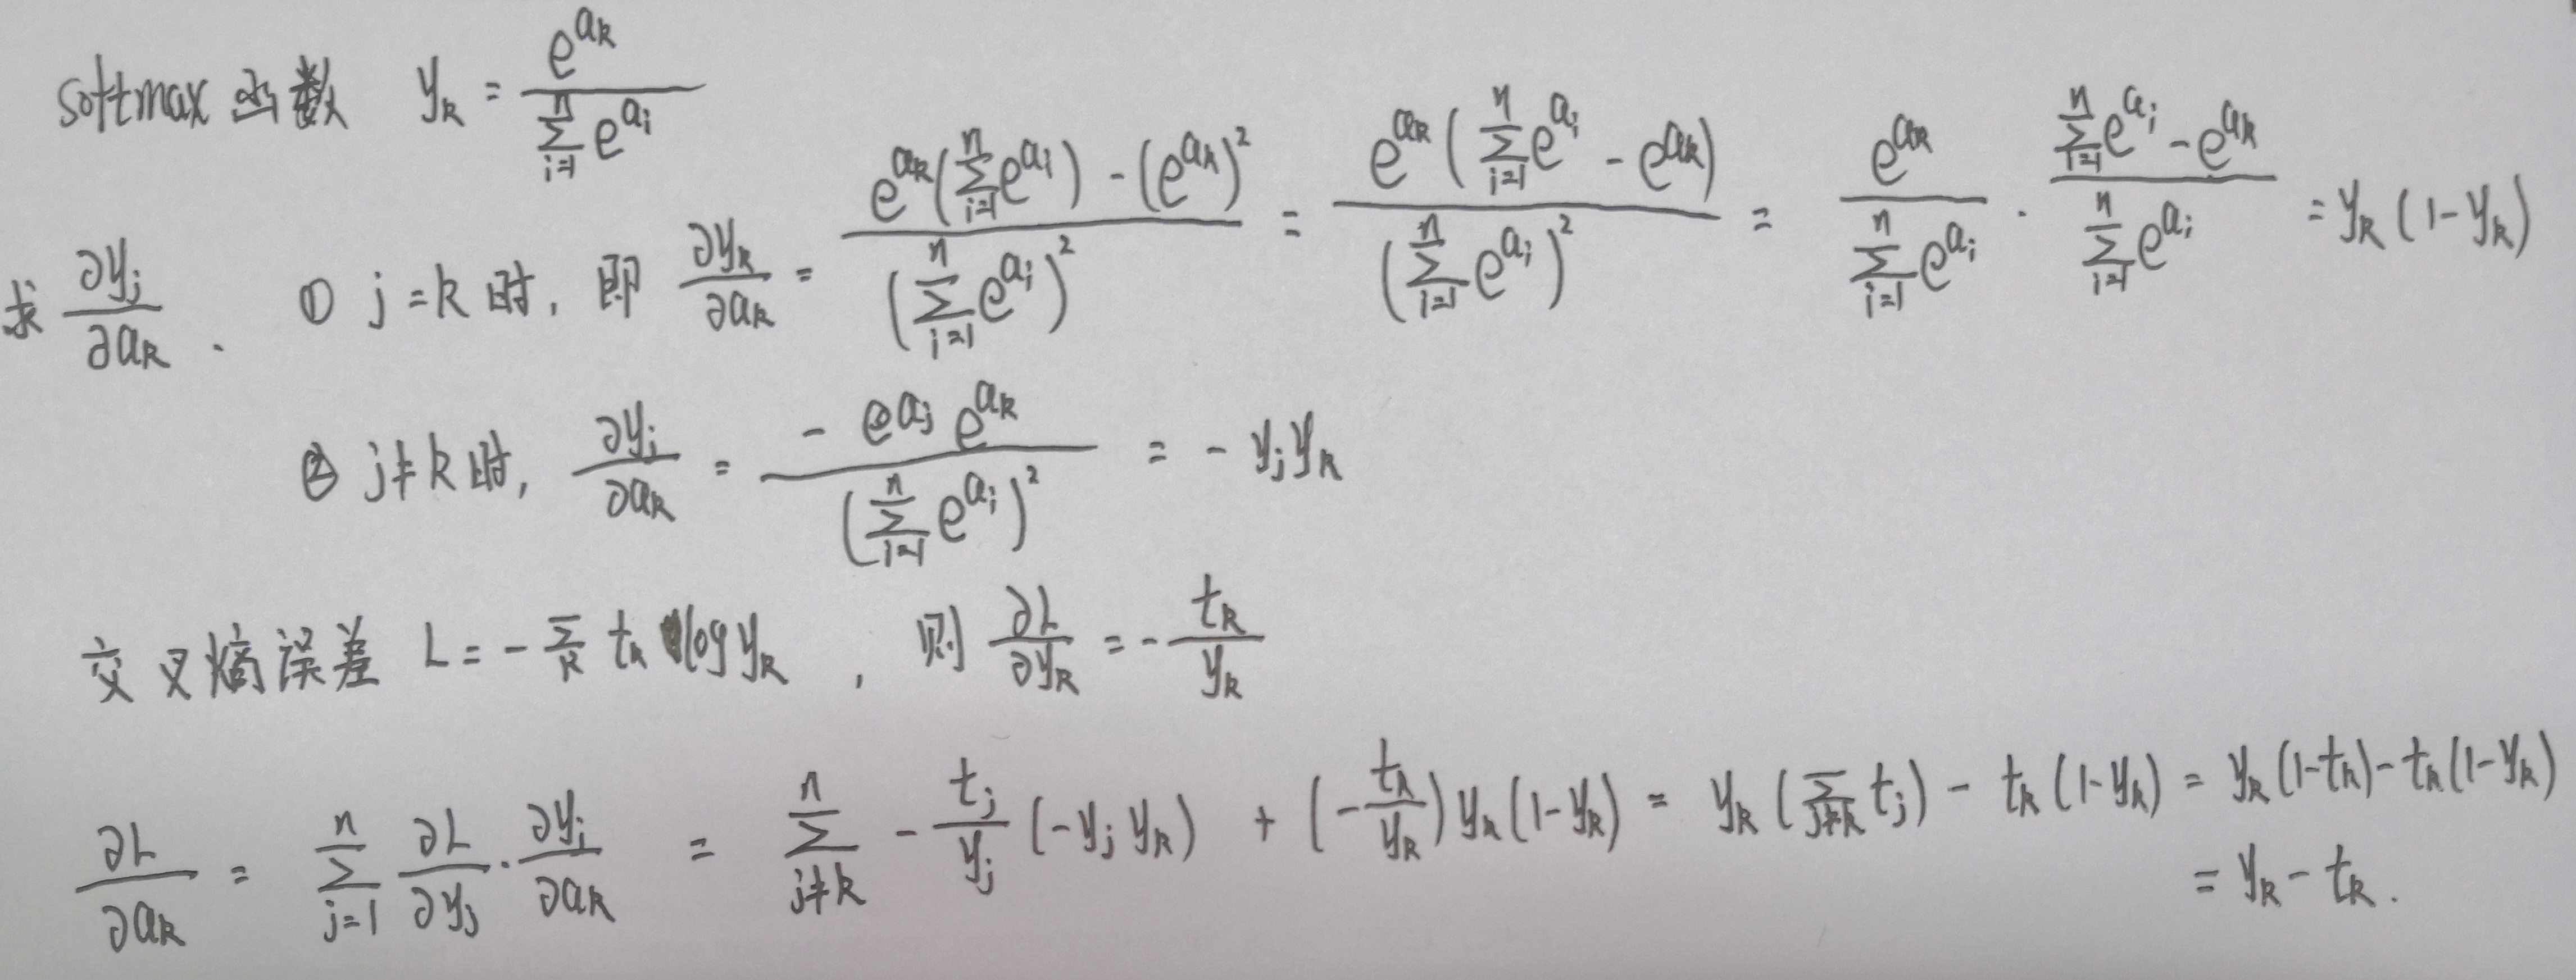 softmax 函数 y_k = e^{a_k} / ∑_{i=1}^{n} e^{a_i}
求 ∂y_j/∂a_k . ① j=k 时, 即 ∂y_k/∂a_k = (e^{a_k}(∑_{i=1}^{n} e^{a_i}) - (e^{a_k})^2) / (∑_{i=1}^{n} e^{a_i})^2 = e^{a_k}(∑_{i=1}^{n} e^{a_i} - e^{a_k}) / (∑_{i=1}^{n} e^{a_i})^2 = e^{a_k} / ∑_{i=1}^{n} e^{a_i} · (∑_{i=1}^{n} e^{a_i} - e^{a_k}) / ∑_{i=1}^{n} e^{a_i} = y_k (1-y_k)
② j≠k 时, ∂y_j/∂a_k = - e^{a_j} e^{a_k} / (∑_{i=1}^{n} e^{a_i})^2 = - y_j y_k
交叉熵误差 L = - ∑_k t_k log y_k , 则 ∂L/∂y_k = - t_k/y_k
∂L/∂a_k = ∑_{j=1}^{n} ∂L/∂y_j · ∂y_j/∂a_k = ∑_{j≠k}^{n} - t_j/y_j (-y_j y_k) + (- t_k/y_k) y_k (1-y_k) = y_k (∑_{j≠k} t_j) - t_k (1-y_k) = y_k (1-t_k) - t_k (1-y_k)
= y_k - t_k .